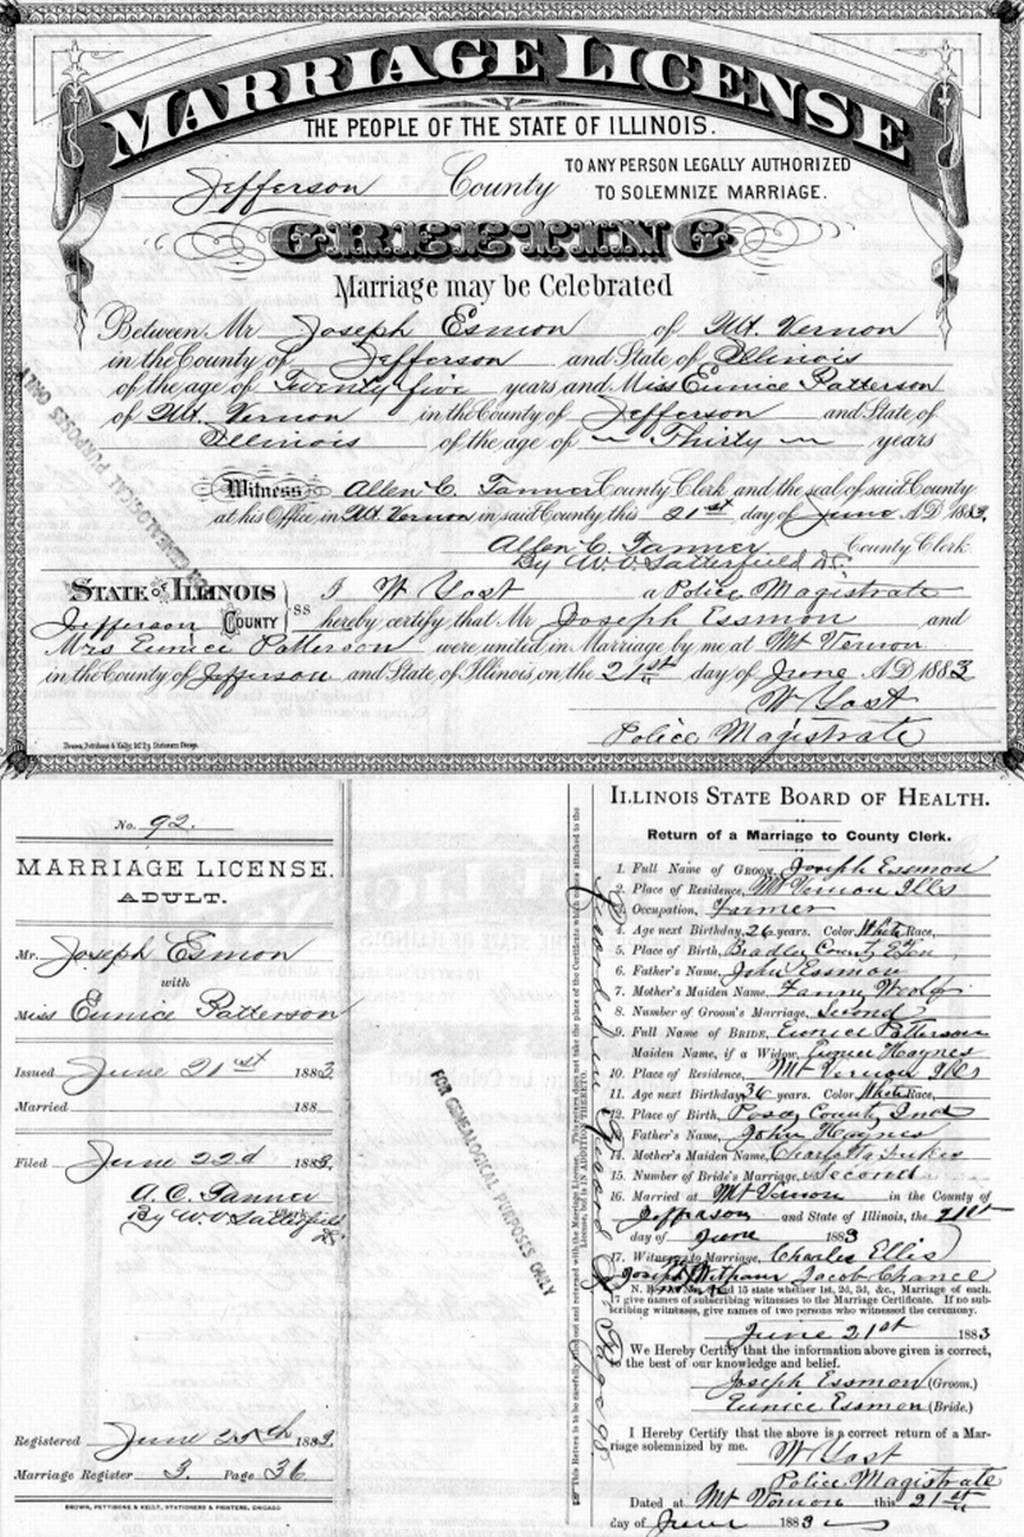 MARRIAGE LICENSE
THE PEOPLE OF THE STATE OF ILLINOIS.
Jefferson County TO ANY PERSON LEGALLY AUTHORIZED
TO SOLEMNIZE MARRIAGE.
GREETING
Marriage may be Celebrated
Between Mr Joseph Esmon of Mt. Vernon
in the County of Jefferson and State of Illinois
of the age of Twenty five years and Miss Eunice Patterson
of Mt. Vernon in the County of Jefferson and State of
Illinois of the age of Thirty years
Witness Allen C. Tanner County Clerk and the seal of said County
at his Office in Mt Vernon in said County this 21st day of June A.D. 1883.
Allen C. Tanner County Clerk
By W. V. Satterfield D.C.
STATE OF ILLINOIS } ss I W Yost a Police Magistrate
Jefferson COUNTY hereby certify that Mr Joseph Essmon and
Mrs Eunice Patterson were united in Marriage by me at Mt Vernon
in the County of Jefferson and State of Illinois, on the 21st day of June A.D. 1883
W Yost
Police Magistrate
Brown, Pettibone & Kelly,
FOR GENEALOGICAL PURPOSES ONLY
No. 92.
MARRIAGE LICENSE.
ADULT.
Mr. Joseph Esmon
with
Miss Eunice Patterson
Issued June 21st 1883.
Married 188
Filed June 22d 1883.
A. C. Tanner
Clerk
By W. V. Satterfield
DC
Registered June 25th 1883.
Marriage Register 3. Page 36
BROWN, PETTIBONE & KELLY, STATIONERS & PRINTERS, CHICAGO
FOR GENEALOGICAL PURPOSES ONLY
ILLINOIS STATE BOARD OF HEALTH.
Return of a Marriage to County Clerk.
1. Full Name of GROOM, Joseph Essmon
2. Place of Residence, Mt Vernon Ills
3. Occupation, Farmer
4. Age next Birthday, 26 years. Color, White Race,
5. Place of Birth, Bradley County E Ten
6. Father's Name, John Essmon
7. Mother's Maiden Name, Fanny
8. Number of Groom's Marriage, Second
9. Full Name of BRIDE, Eunice Patterson
Maiden Name, if a Widow, Eunice Haynes
10. Place of Residence, Mt Vernon Ills
11. Age next Birthday, 36 years. Color, White Race,
12. Place of Birth, Posey County Ind
13. Father's Name, John Haynes
14. Mother's Maiden Name, Charlotte
15. Number of Bride's Marriage, Second
16. Married at Mt Vernon in the County of
Jefferson and State of Illinois, the 21st
day of June 1883
17. Witness to Marriage, Charles Ellis
Joseph Jacob Chance
N. B.—At Nos. 8 and 15 state whether 1st, 2d, 3d, &c., Marriage of each.
17 give names of subscribing witnesses to the Marriage Certificate. If no sub-
scribing witnesses, give names of two persons who witnessed the ceremony.
June 21st 1883
We Hereby Certify that the information above given is correct,
to the best of our knowledge and belief.
Joseph Essmon (Groom.)
Eunice Essmon (Bride.)
I Hereby Certify that the above is a correct return of a Mar-
riage solemnized by me.
W Yost
Police Magistrate
Dated at Mt Vernon this 21st
day of June 1883